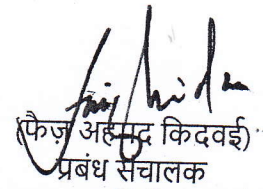 (फैज़ अहमद किदवई)
प्रबंध संचालक